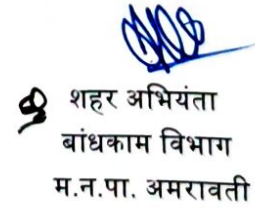 शहर अभियंता
बांधकाम विभाग
म.न.पा. अमरावती